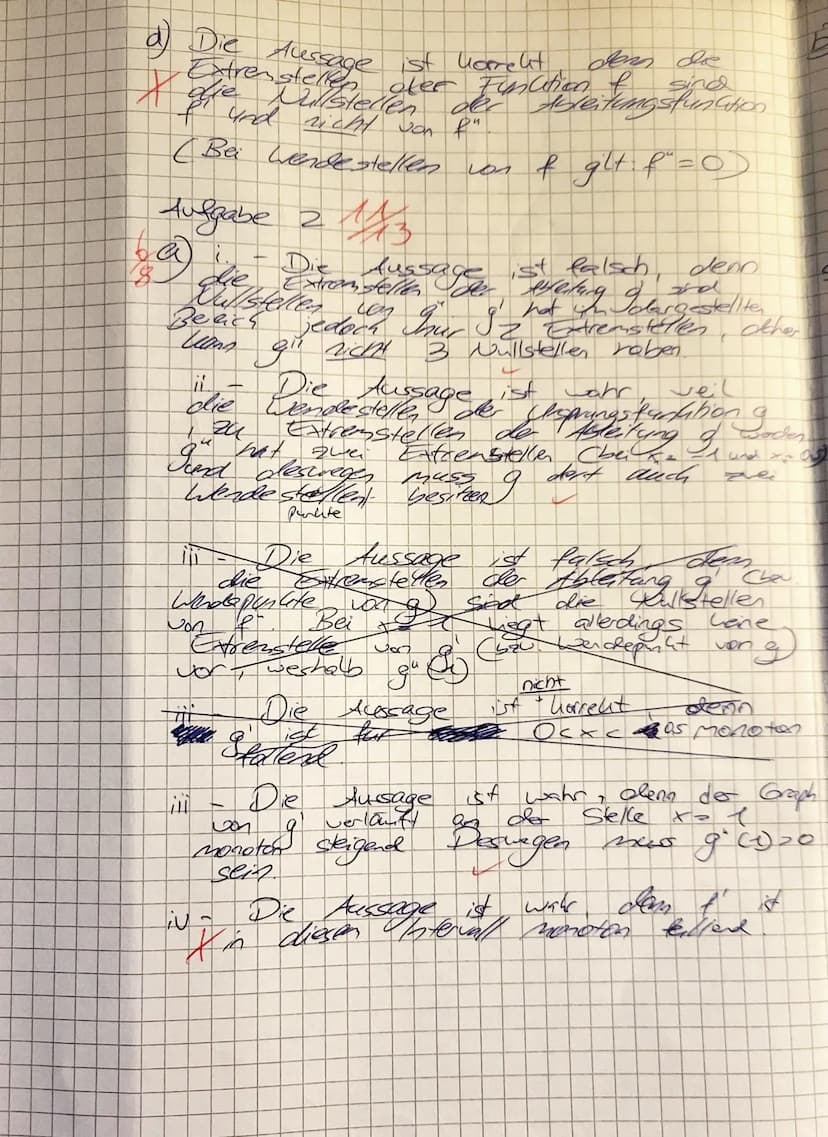 d) Die Aussage ist korrekt, denn die
Extremstellen der Funktion f sind
X die Nullstellen der Ableitungsfunktion
f' und nicht von f''.
(Bei Wendestellen von f gilt: f''=0)
Aufgabe 2 11/13
6/8 a) i. - Die Aussage ist falsch, denn
die Extremstellen der Ableitung g' sind
Nullstellen von g''. g' hat im dargestellten
Bereich jedoch nur 2 Extremstellen, daher
kann g'' nicht 3 Nullstellen haben
ii - Die Aussage ist wahr, weil
die Wendestellen der Ursprungsfunktion g
, zu Extremstellen der Ableitung g' werden
g'' hat zwei Extremstellen (bei x=-1 und x=0,5)
und deswegen muss g dort auch zwei
Wendestellen besitzen
punkte
iii - Die Aussage ist falsch, denn
die Extremstellen der Ableitung g' (bzw
Wendepunkte von g) sind die Nullstellen
von f''. Bei liegt allerdings keine
Extremstelle von g' (bzw. Wendepunkt von g)
vor, weshalb g''(1)
nicht
iii - Die Aussage ist korrekt, denn
g' ist für 0<x< 0,5 monoton
fallend.
iii - Die Aussage ist wahr, denn der Graph
von g' verläuft an der Stelle x=1
monoton steigend Deswegen muss g''(1)>0
sein.
iv - Die Aussage ist wahr, denn f' ist
X in diesem Intervall monoton fallend.